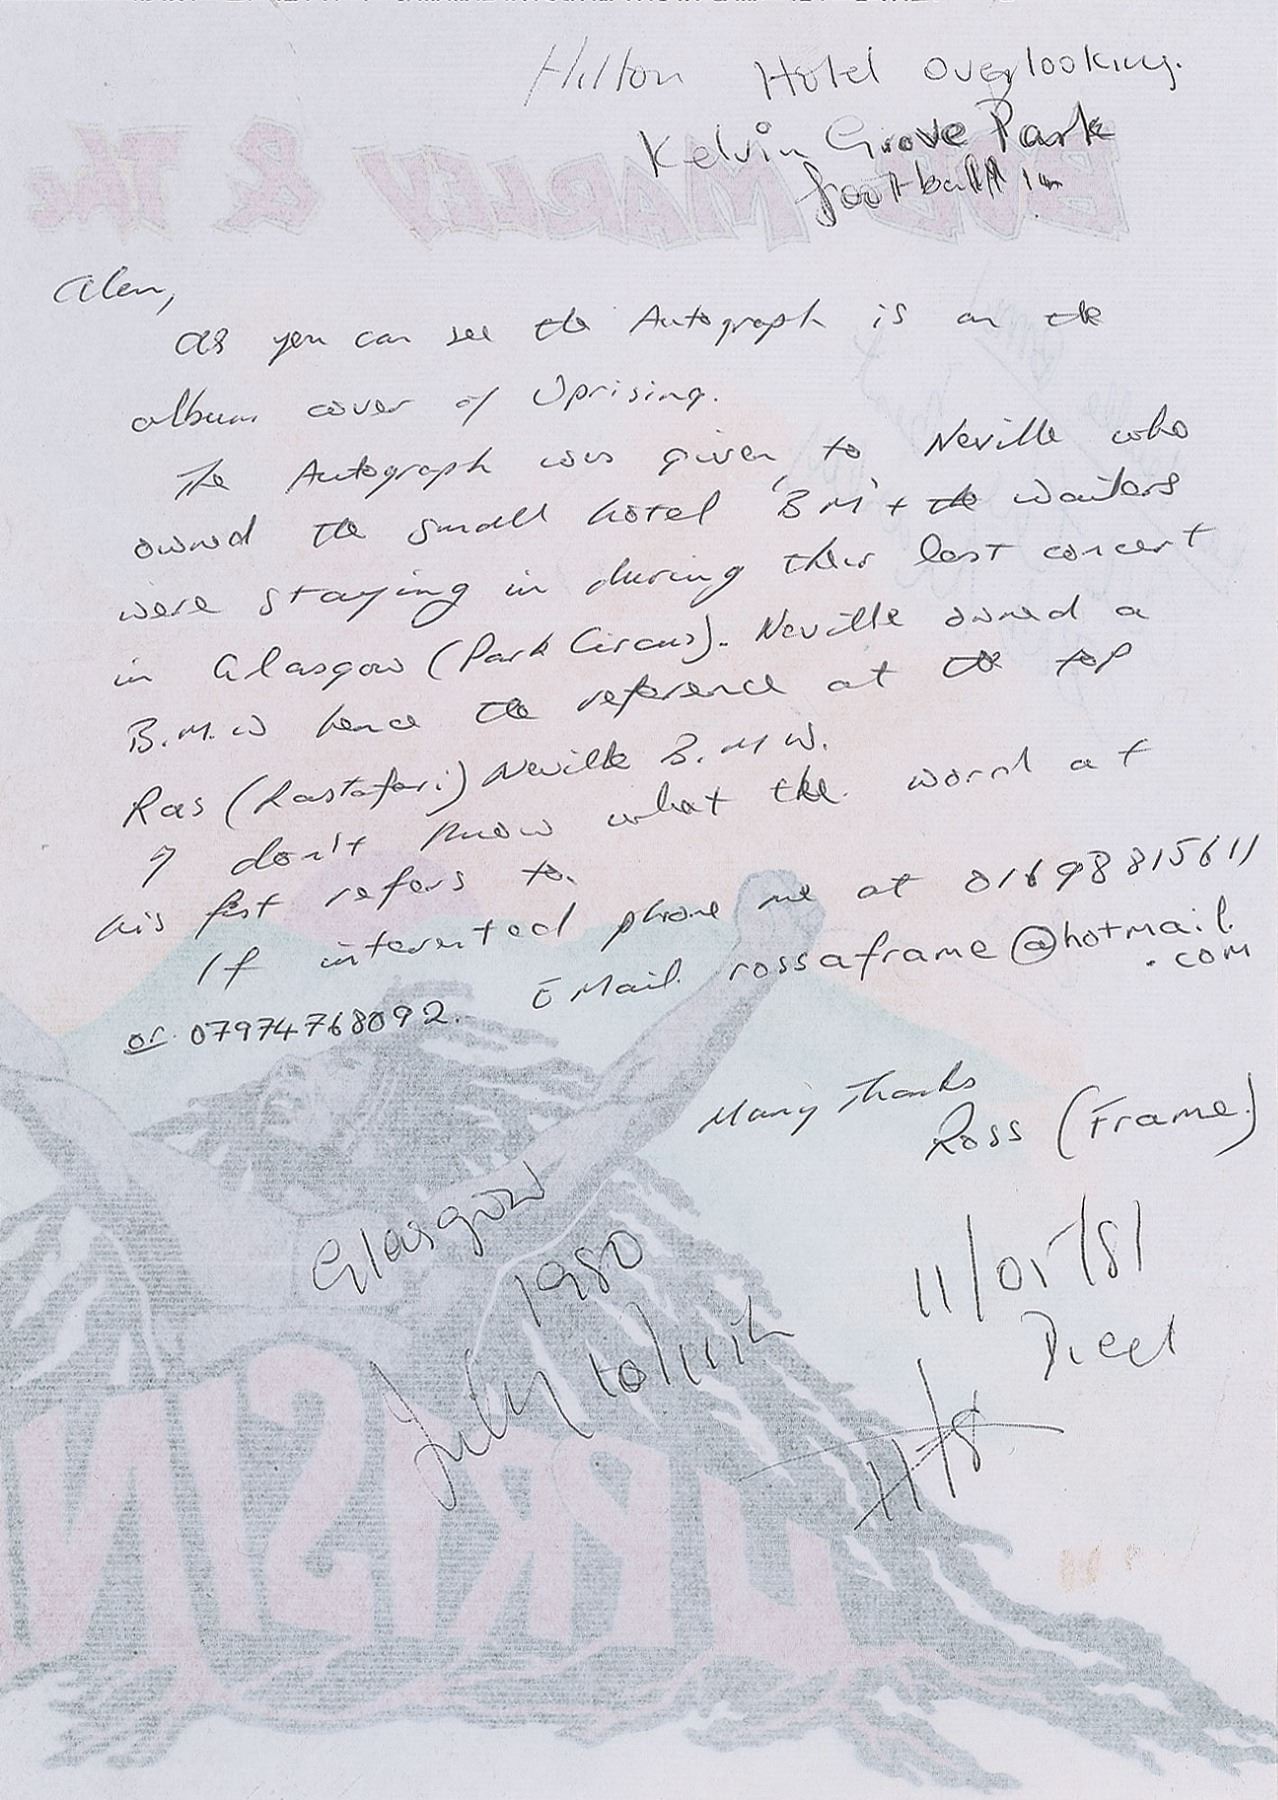 Hilton Hotel overlooking.
Kelvin Grove Park
football in
Alan,
as you can see the Autograph is on the
album cover of Uprising.
The Autograph was given to Neville who
owned the small hotel 'B M' + the wailers
were staying in during their last concert
in Glasgow (Park Circus). Neville owned a
B.M.W hence the reference at the top
Ras (Rastafari) Neville B.M.W.
I don't know what the word at
his fist refers to.
If interested phone me at 01698 815611
or 07974768092. EMail rossaframe@hotmail
.com
Many Thanks
Ross (Frame)
Glasgow
1980
July 10/
11/05/81
Died
BOB MARLEY & The
UPRISIN